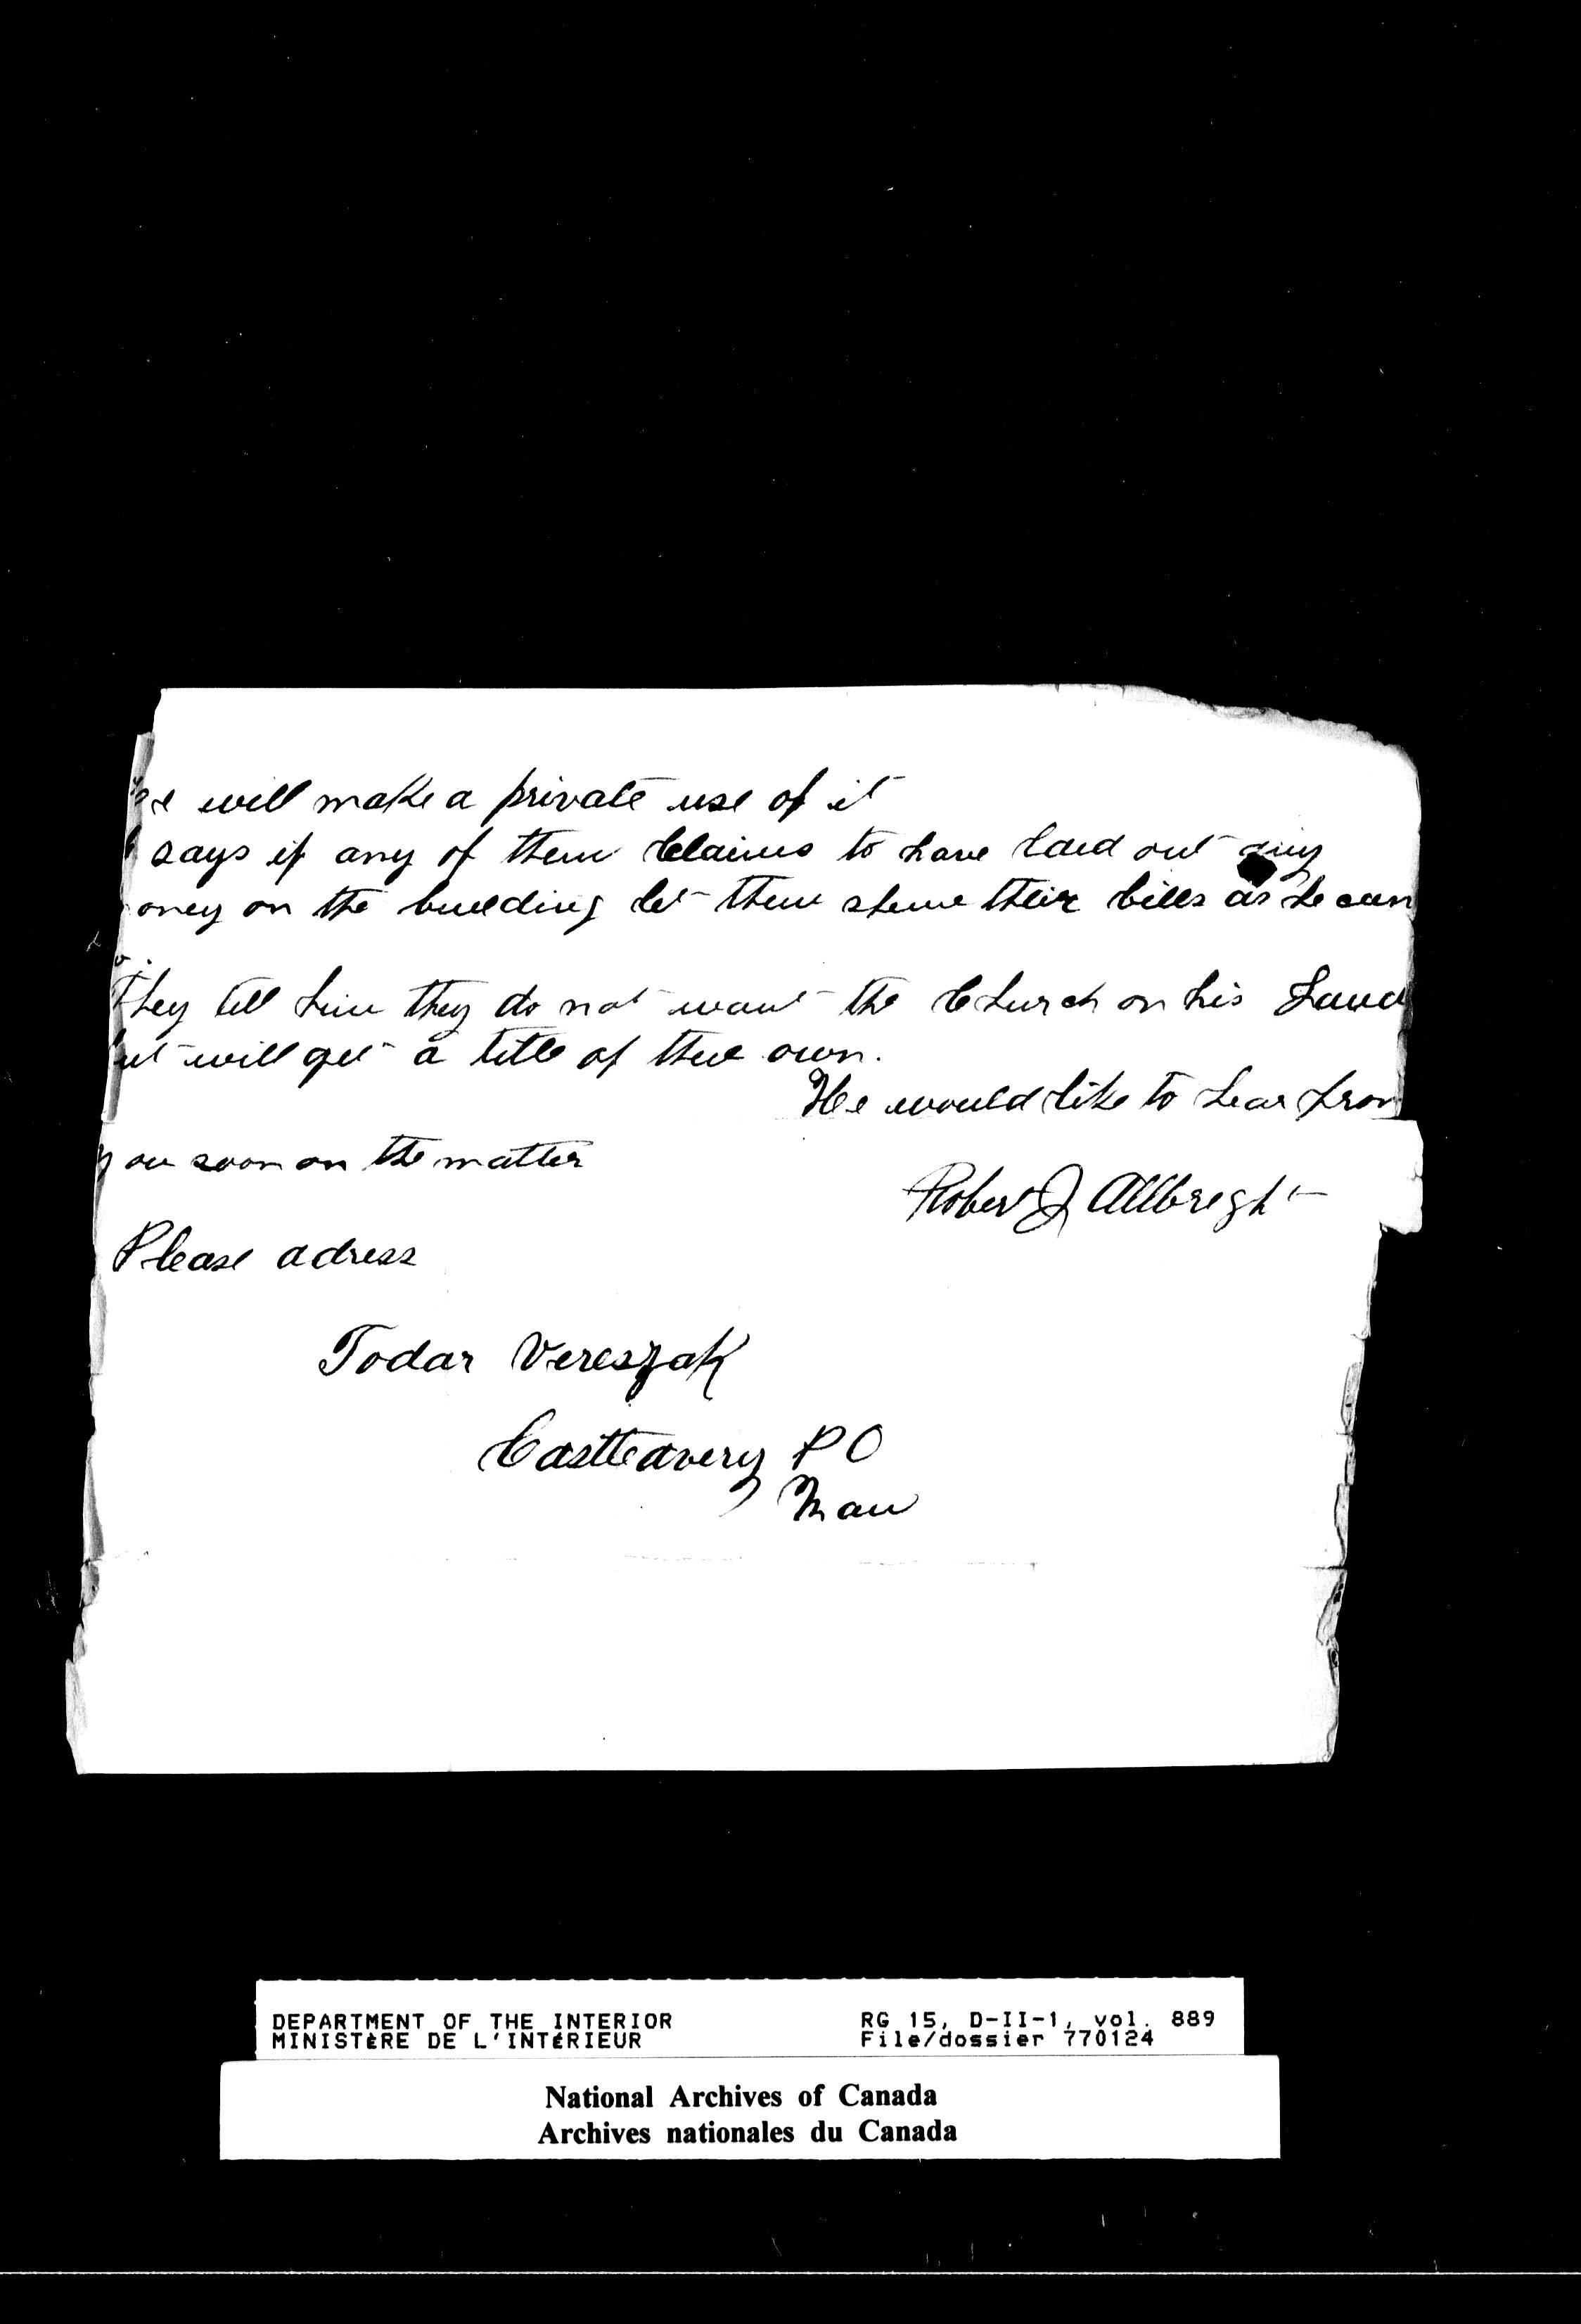 he will make a private use of it
says if any of them Claims to have laid out any
oney on the building let them shew their bills as he can
They tell him they do not want the Church on his Land
but will get a title of thee own.
He would like to hear from
you soon on the matter
Robert J Allbreght
Please adress
Todar Vereszak
Castleavery P O
Man
DEPARTMENT OF THE INTERIOR RG 15, D-II-1, vol. 889
MINISTÈRE DE L'INTÉRIEUR File/dossier 770124
National Archives of Canada
Archives nationales du Canada